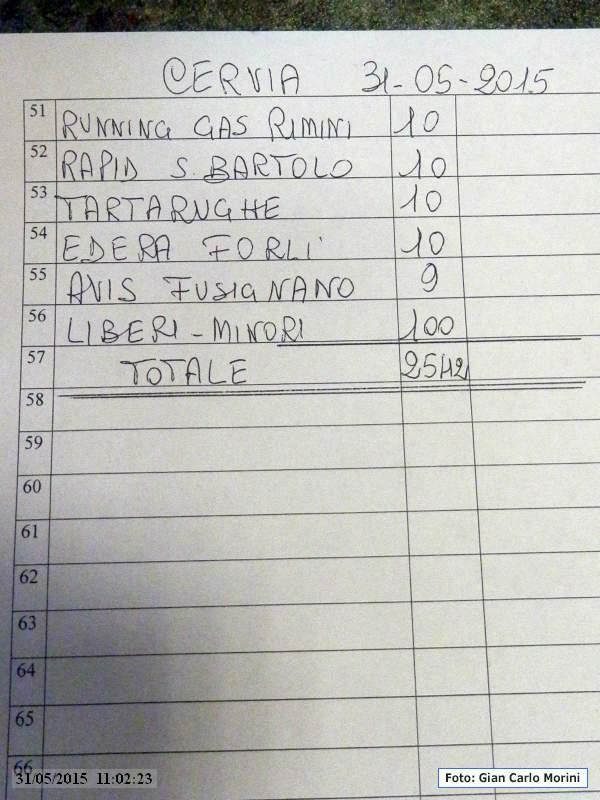 CERVIA 31-05-2015
51 RUNNING GAS RIMINI 10
52 RAPID S. BARTOLO 10
53 TARTARUGHE 10
54 EDERA FORLI' 10
55 AVIS FUSIGNANO 9
56 LIBERI-MINORI 100
57 TOTALE 2542
58
59
60
61
62
63
64
65
66
31/05/2015 11:02:23
Foto: Gian Carlo Morini